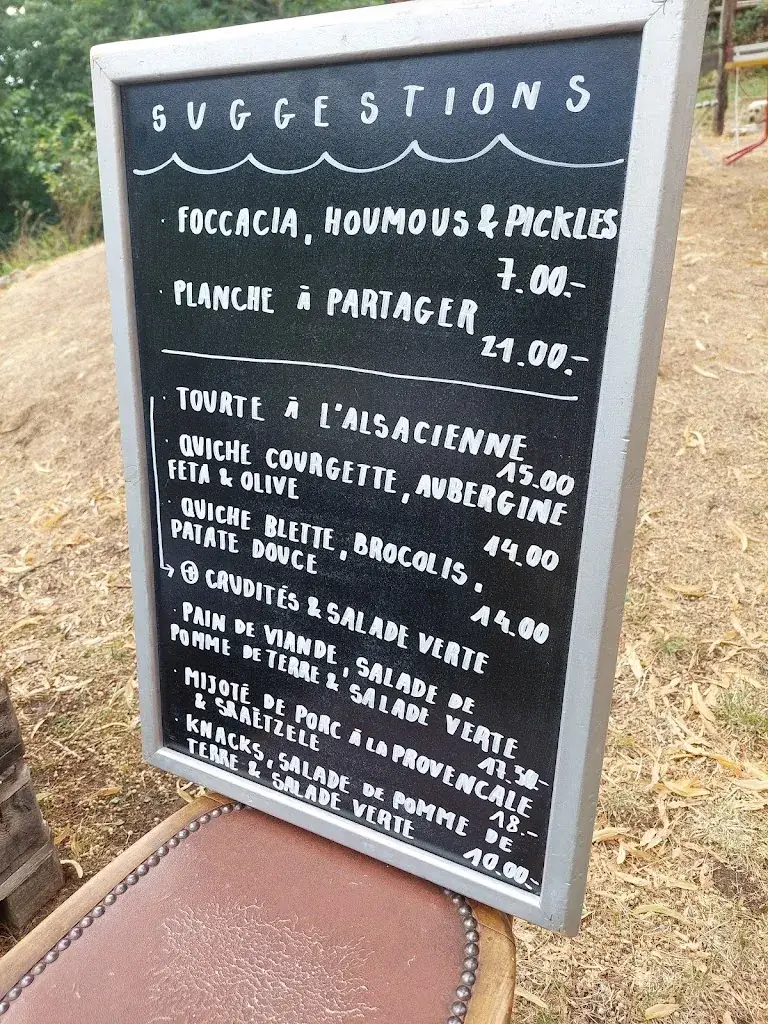 SUGGESTIONS
· FOCCACIA, HOUMOUS & PICKLES
7.00.-
· PLANCHE à PARTAGER
21.00.-
· TOURTE à L'ALSACIENNE
15.00
· QUICHE COURGETTE, AUBERGINE
FETA & OLIVE
14.00
· QUICHE BLETTE, BROCOLIS,
PATATE DOUCE
14.00
→ + CRUDITÉS & SALADE VERTE
· PAIN DE VIANDE, SALADE DE
POMME DE TERRE & SALADE VERTE
17.50.-
· MIJOTÉ DE PORC à LA PROVENCALE
& SRAËTZELE
18.-
· KNACKS, SALADE DE POMME DE
TERRE & SALADE VERTE
10.00.-